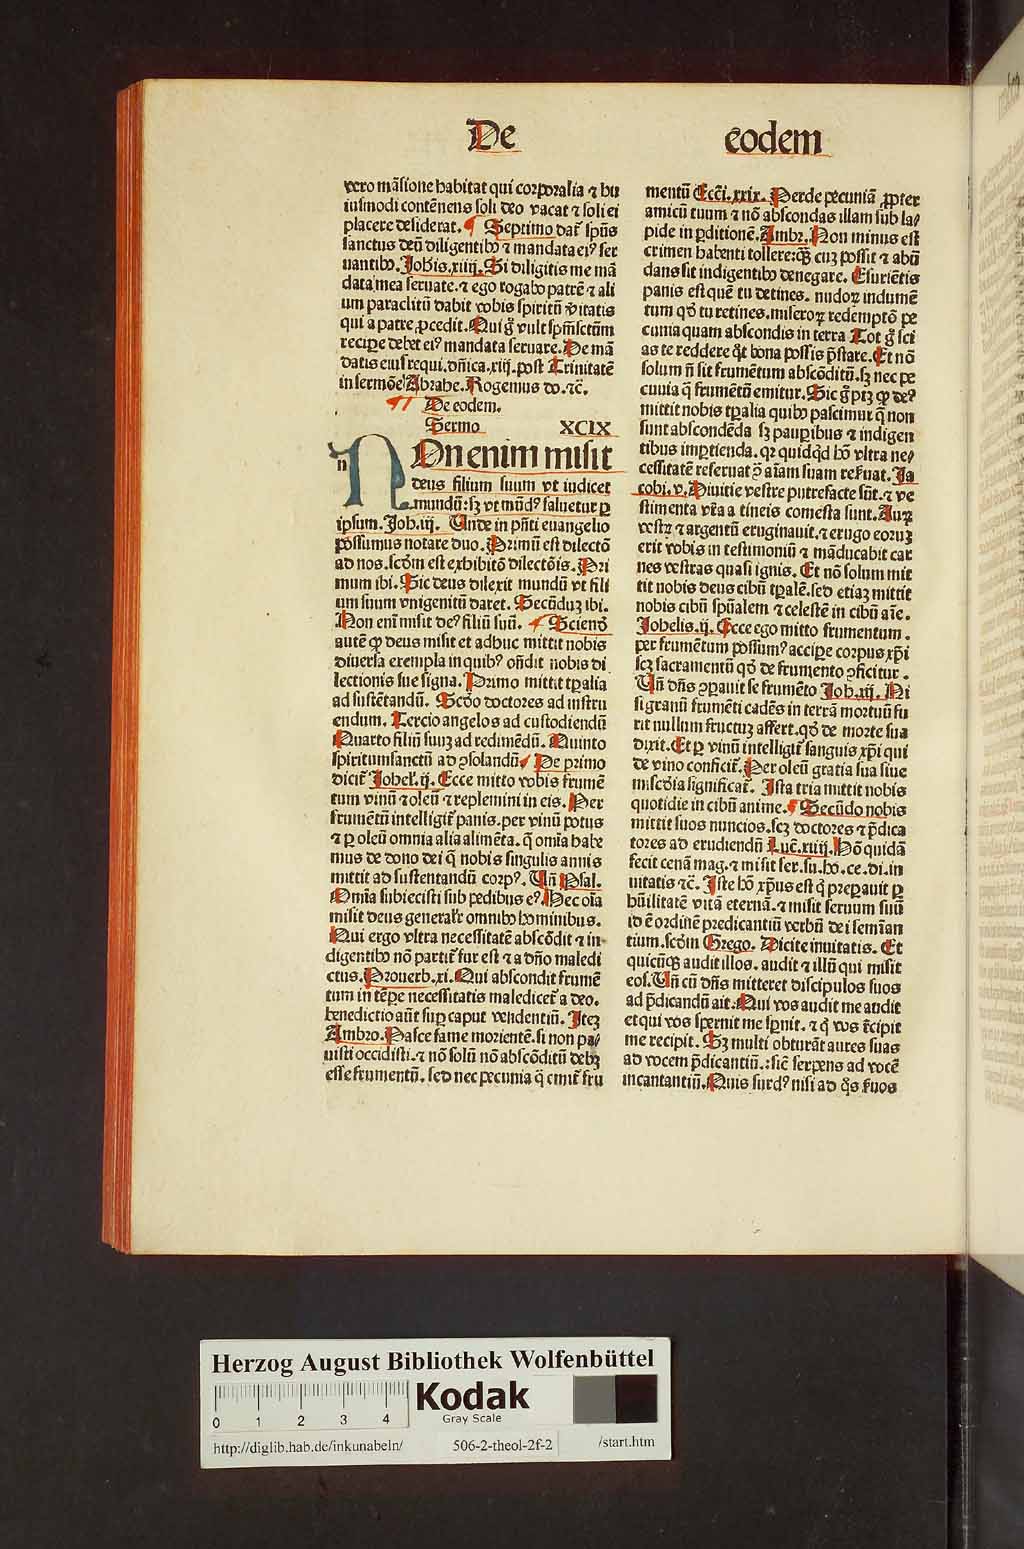 De
eodem
vero mãsione habitat qui corporalia ⁊ hu
iusmodi contẽnens soli deo vacat ⁊ soli ei
placere desiderat. ¶ Septimo dat̃ spũs
sanctus deũ diligentibꝰ ⁊ mandata eiꝰ ser
uantibꝰ. Johis. xiiij. Si diligitis me mã
data mea seruate. ⁊ ego rogabo patrẽ ⁊ ali
um paraclitũ dabit vobis spiritũ ṽitatis
qui a patre ꝓcedit. Qui gͦ vult spm̃ sctũm
recipe debet eiꝰ mandata seruare. De mã
datis eius require dñica. xiij. post Trinitatẽ
in sermõe Abrahe. Rogemus do. ⁊c̃.
¶ De eodem.
Sermo XCIX
n NOn enim misit
deus filium suum vt iudicet
mundũ: sꝫ vt mũdꝰ saluetur ꝑ
ipsum. Joh. iij. Unde in pñti euangelio
possumus notare duo. Primũ est dilectõ
ad nos. scðm est exhibitõ dilectõis. Pri
mum ibi. Sic deus dilexit mundũ vt fili
um suum vnigenitũ daret. Secũduꝫ ibi.
Non eni͂ misit deꝰ filiũ suũ. ¶ Sciendͦ
autẽ ꝙ deus misit et adhuc mittit nobis
diuersa exempla in quibꝰ oñdit nobis di
lectionis sue signa. Primo mittit tꝑalia
ad sustẽtandũ. Scðo doctores ad instru
endum. Tercio angelos ad custodiendũ
Quarto filiũ suuꝫ ad redimẽdũ. Quinto
spiritumsanctũ ad ꝯsolandũ ¶ De primo
dicit̃ Johel'. ij. Ecce mitto vobis frumẽ
tum vinũ ⁊ oleũ ⁊ replemini in eis. Per
frumẽtũ intelligit̃ panis. per vinũ potus
⁊ ꝑ oleũ omnia alia alimẽta. q̃ omia habe
mus de dono dei q̃ nobis singulis annis
mittit ad sustentandũ corpꝰ. Uñ Psal.
Omĩa subiecisti sub pedibus eꝰ. Hec oĩa
misit deus general'r omnibꝰ hominibus.
Qui ergo vltra necessitatẽ abscõdit ⁊ in-
digentibꝰ nõ partit̃ fur est ⁊ a dño maledi
ctus. Prouerb. xi. Qui abscondit frumẽ
tum in tẽpe necessitatis maledicet̃ a deo.
benedictio aũt suꝑ caput vendentiũ. Iteꝫ
Ambro. Pasce fame morientẽ. si non pa/
uisti occidisti. ⁊ nõ solũ nõ abscõditũ debꝫ
esse frumentũ. sed nec pecunia q̃ emit̃ fru
mentũ Ecci. xxix. Perde pecuniã ꝓpter
amicũ tuum ⁊ nõ abscondas illam sub la/
pide in ꝑditionẽ. Ambr. Non minus est
crimen habenti tollere: q̃ꝫ cuꝫ possit ⁊ abũ
dans sit indigentibꝰ denegare. Esuriẽtis
panis est quẽ tu detines. nudoꝝ indumẽ
tum qð tu retines. miseroꝝ redemptõ pe
cunia quam abscondis in terra Tot gͦ sci
as te reddere q̃t bona possis p̃stare. Et nõ
solum ñ sit frumẽtum abscõditũ. sꝫ nec pe
cunia q̃ frumẽtũ emitur. Sic gͦ ptꝫ ꝙ deꝰ
mittit nobis tꝑalia quibꝰ pascimur q̃ non
sunt abscondẽda sꝫ pauꝑibus ⁊ indigen
tibus imꝑtienda. qꝛ quidqͥd hõ vltra ne/
cessitatẽ reseruat ꝯ aĩam suam reẽuat. Ja
cobi. v. Diuitie vestre putrefacte sũt. ⁊ ve
stimenta vr̃a a tineis comesta sunt. Auꝝ
vestrꝫ ⁊ argentũ eruginauit. ⁊ erugo eoruꝫ
erit vobis in testimoniũ ⁊ mãducabit car
nes vestras quasi ignis. Et nõ solum mit
tit nobis deus cibũ tꝑalẽ. sed etiaꝫ mittit
nobis cibũ spũalem ⁊ celestẽ in cibũ aĩe.
Johelis. ij. Ecce ego mitto frumentum.
per frumẽtum possumꝰ accipe corpus xp̃i
scꝫ sacramentũ qð de frumento ꝯficitur.
Uñ dñs ꝯꝑauit se frumẽto Joh. xij. Ni
si granũ frumẽti cadẽs in terrã mortuũ fu
rit nullum fructuꝫ affert. qð de morte sua
dixit. Et ꝑ vinũ intelligit̃ sanguis xp̃i qui
de vino conficit̃. Per oleũ gratia sua siue
miscðia significat̃. Ista tria mittit nobis
quotidie in cibũ anime. ¶ Secũdo nobis
mittit suos nuncios. scꝫ doctores ⁊ p̃dica
tores ad erudiendũ Luc̃. xiiij. Hõ quidã
fecit cenã mag. ⁊ misit ser. su. ho. ce. di. in
uitatis ⁊c̃. Iste hõ xp̃us est qͥ preparauit ꝑ
hũilitatẽ vitã eternã. ⁊ misit seruum suũ
id ẽ ordinẽ predicantiũ verbũ dei semĩan
tium. scðm Grego. Dicite inuitatis. Et
quicũqꝫ audit illos. audit ⁊ illũ qui misit
eos. Uñ cũ dñs mitteret discipulos suos
ad p̃dicandũ ait. Qui vos audit me audit
et qui vos spernit me sꝑnit. ⁊ qͥ vos r̃cipit
me recipit. Sꝫ multi obturãt aures suas
ad vocem p̃dicantiũ: sic̃ serpens ad vocẽ
incantantiũ. Quis surdꝰ nisi ad q̃s ẽuos
Herzog August Bibliothek Wolfenbüttel
0 1 2 3 4
Kodak
Gray Scale
http://diglib.hab.de/inkunabeln/ 506-2-theol-2f-2 /start.htm